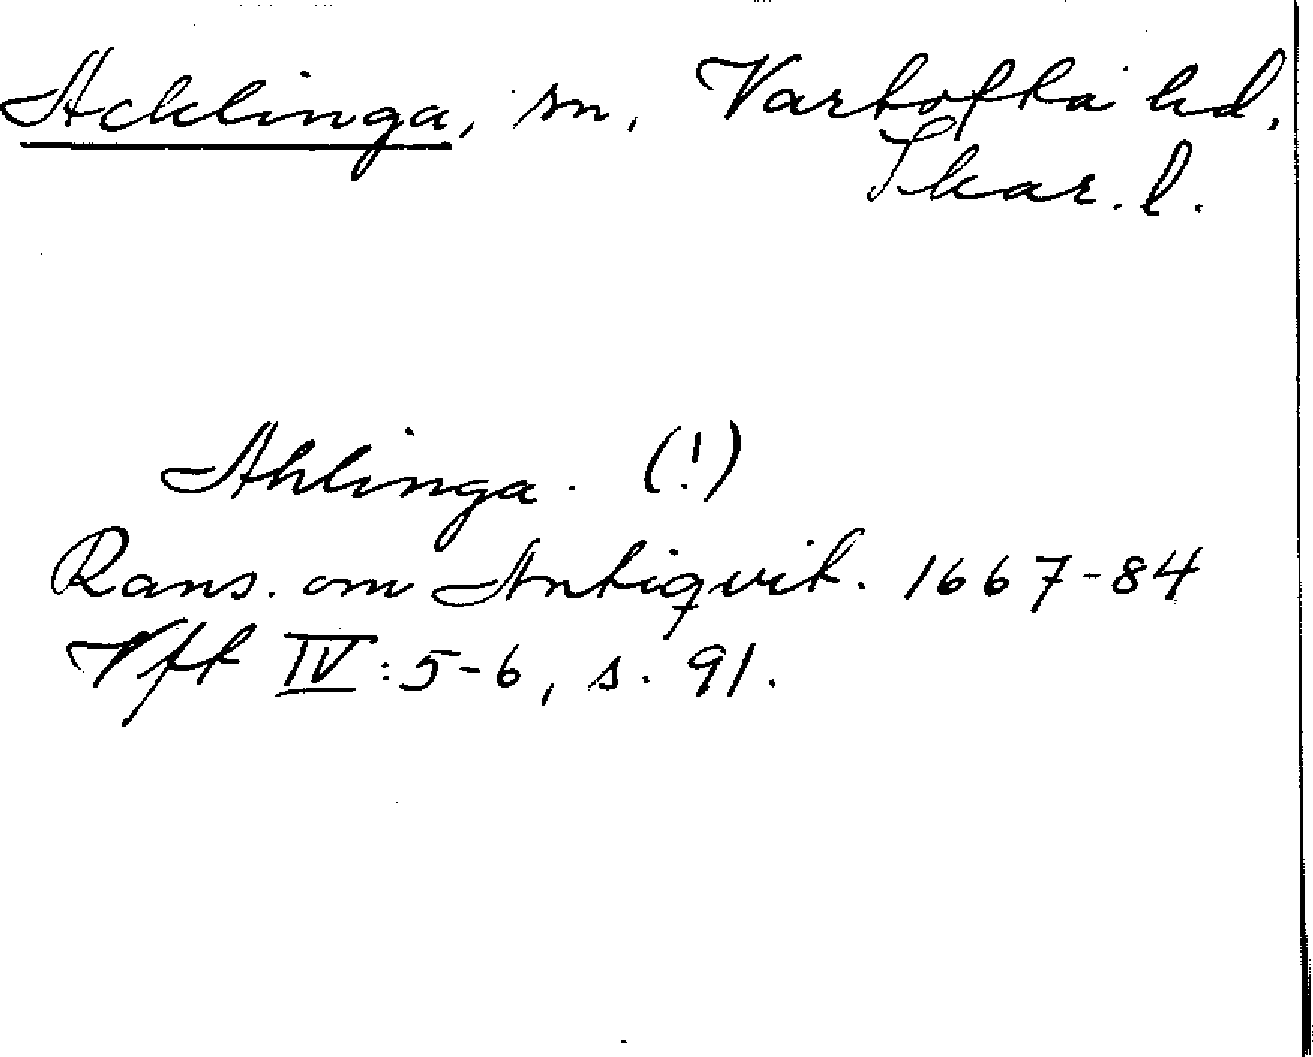 Acklinga, sn, Vartofta hd,
Skar. l.
Ahlinga. (!)
Rans. om Antiqvit. 1667-84
Vft IV:5-6, s. 91.